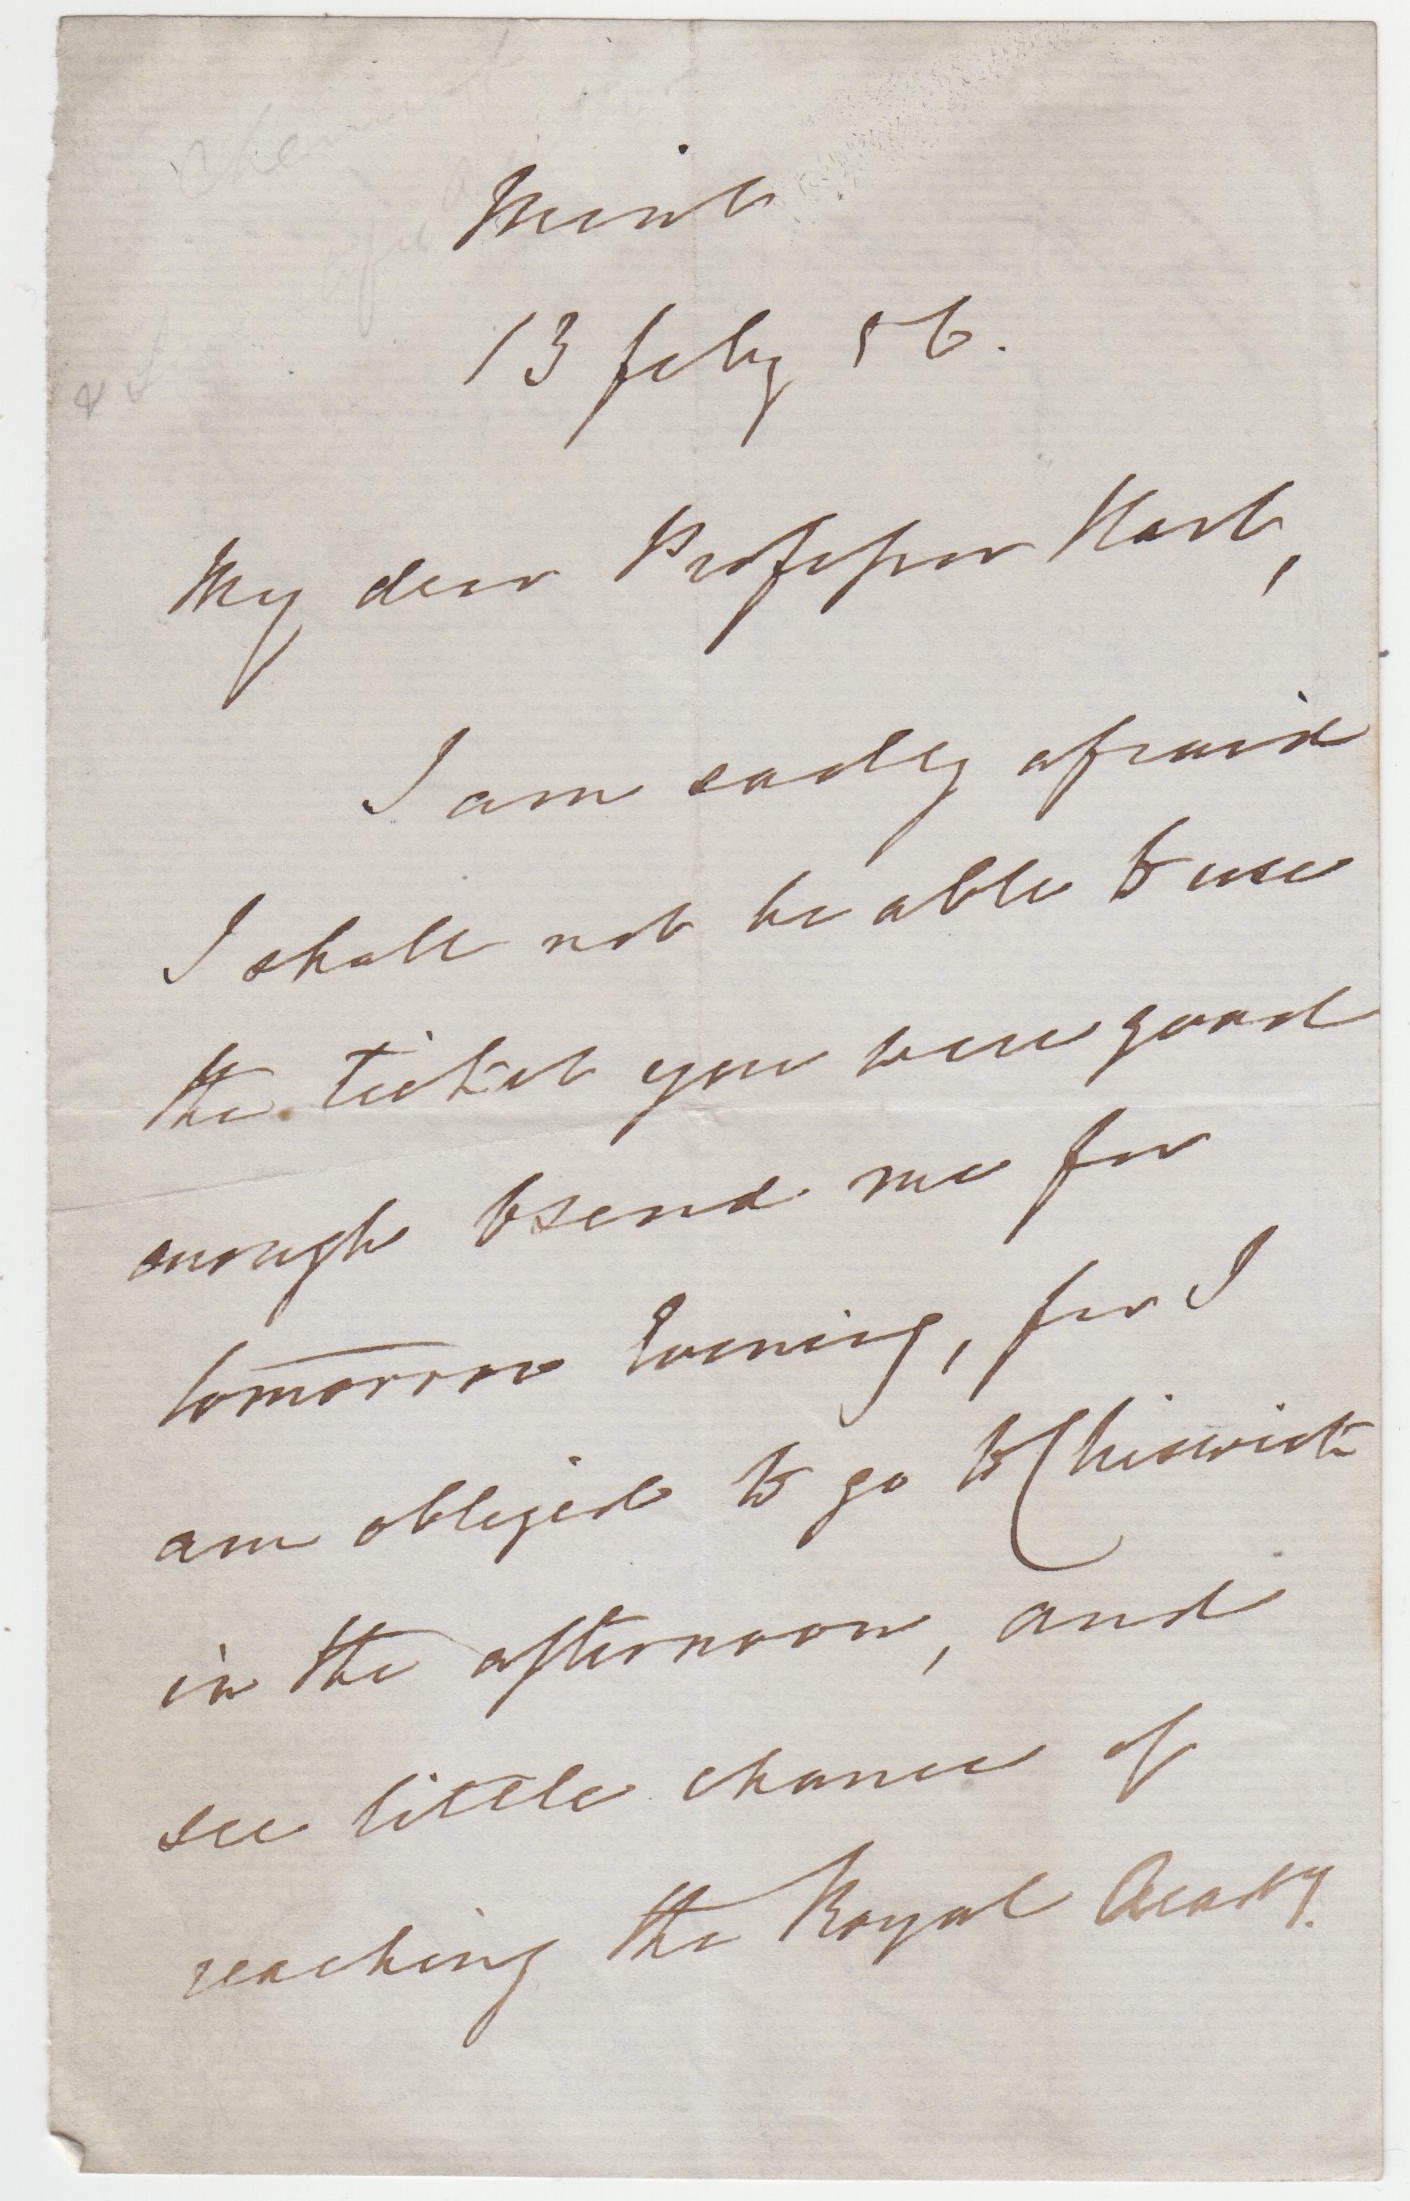 Mint
13 feby 56.
My dear Professor Hart,
I am sadly afraid
I shall not be able to use
the ticket you were good
enough to send me for
tomorrow Evening, for I
am obliged to go to Chiswick
in the afternoon, and
see little chance of
reaching the Royal Acady.